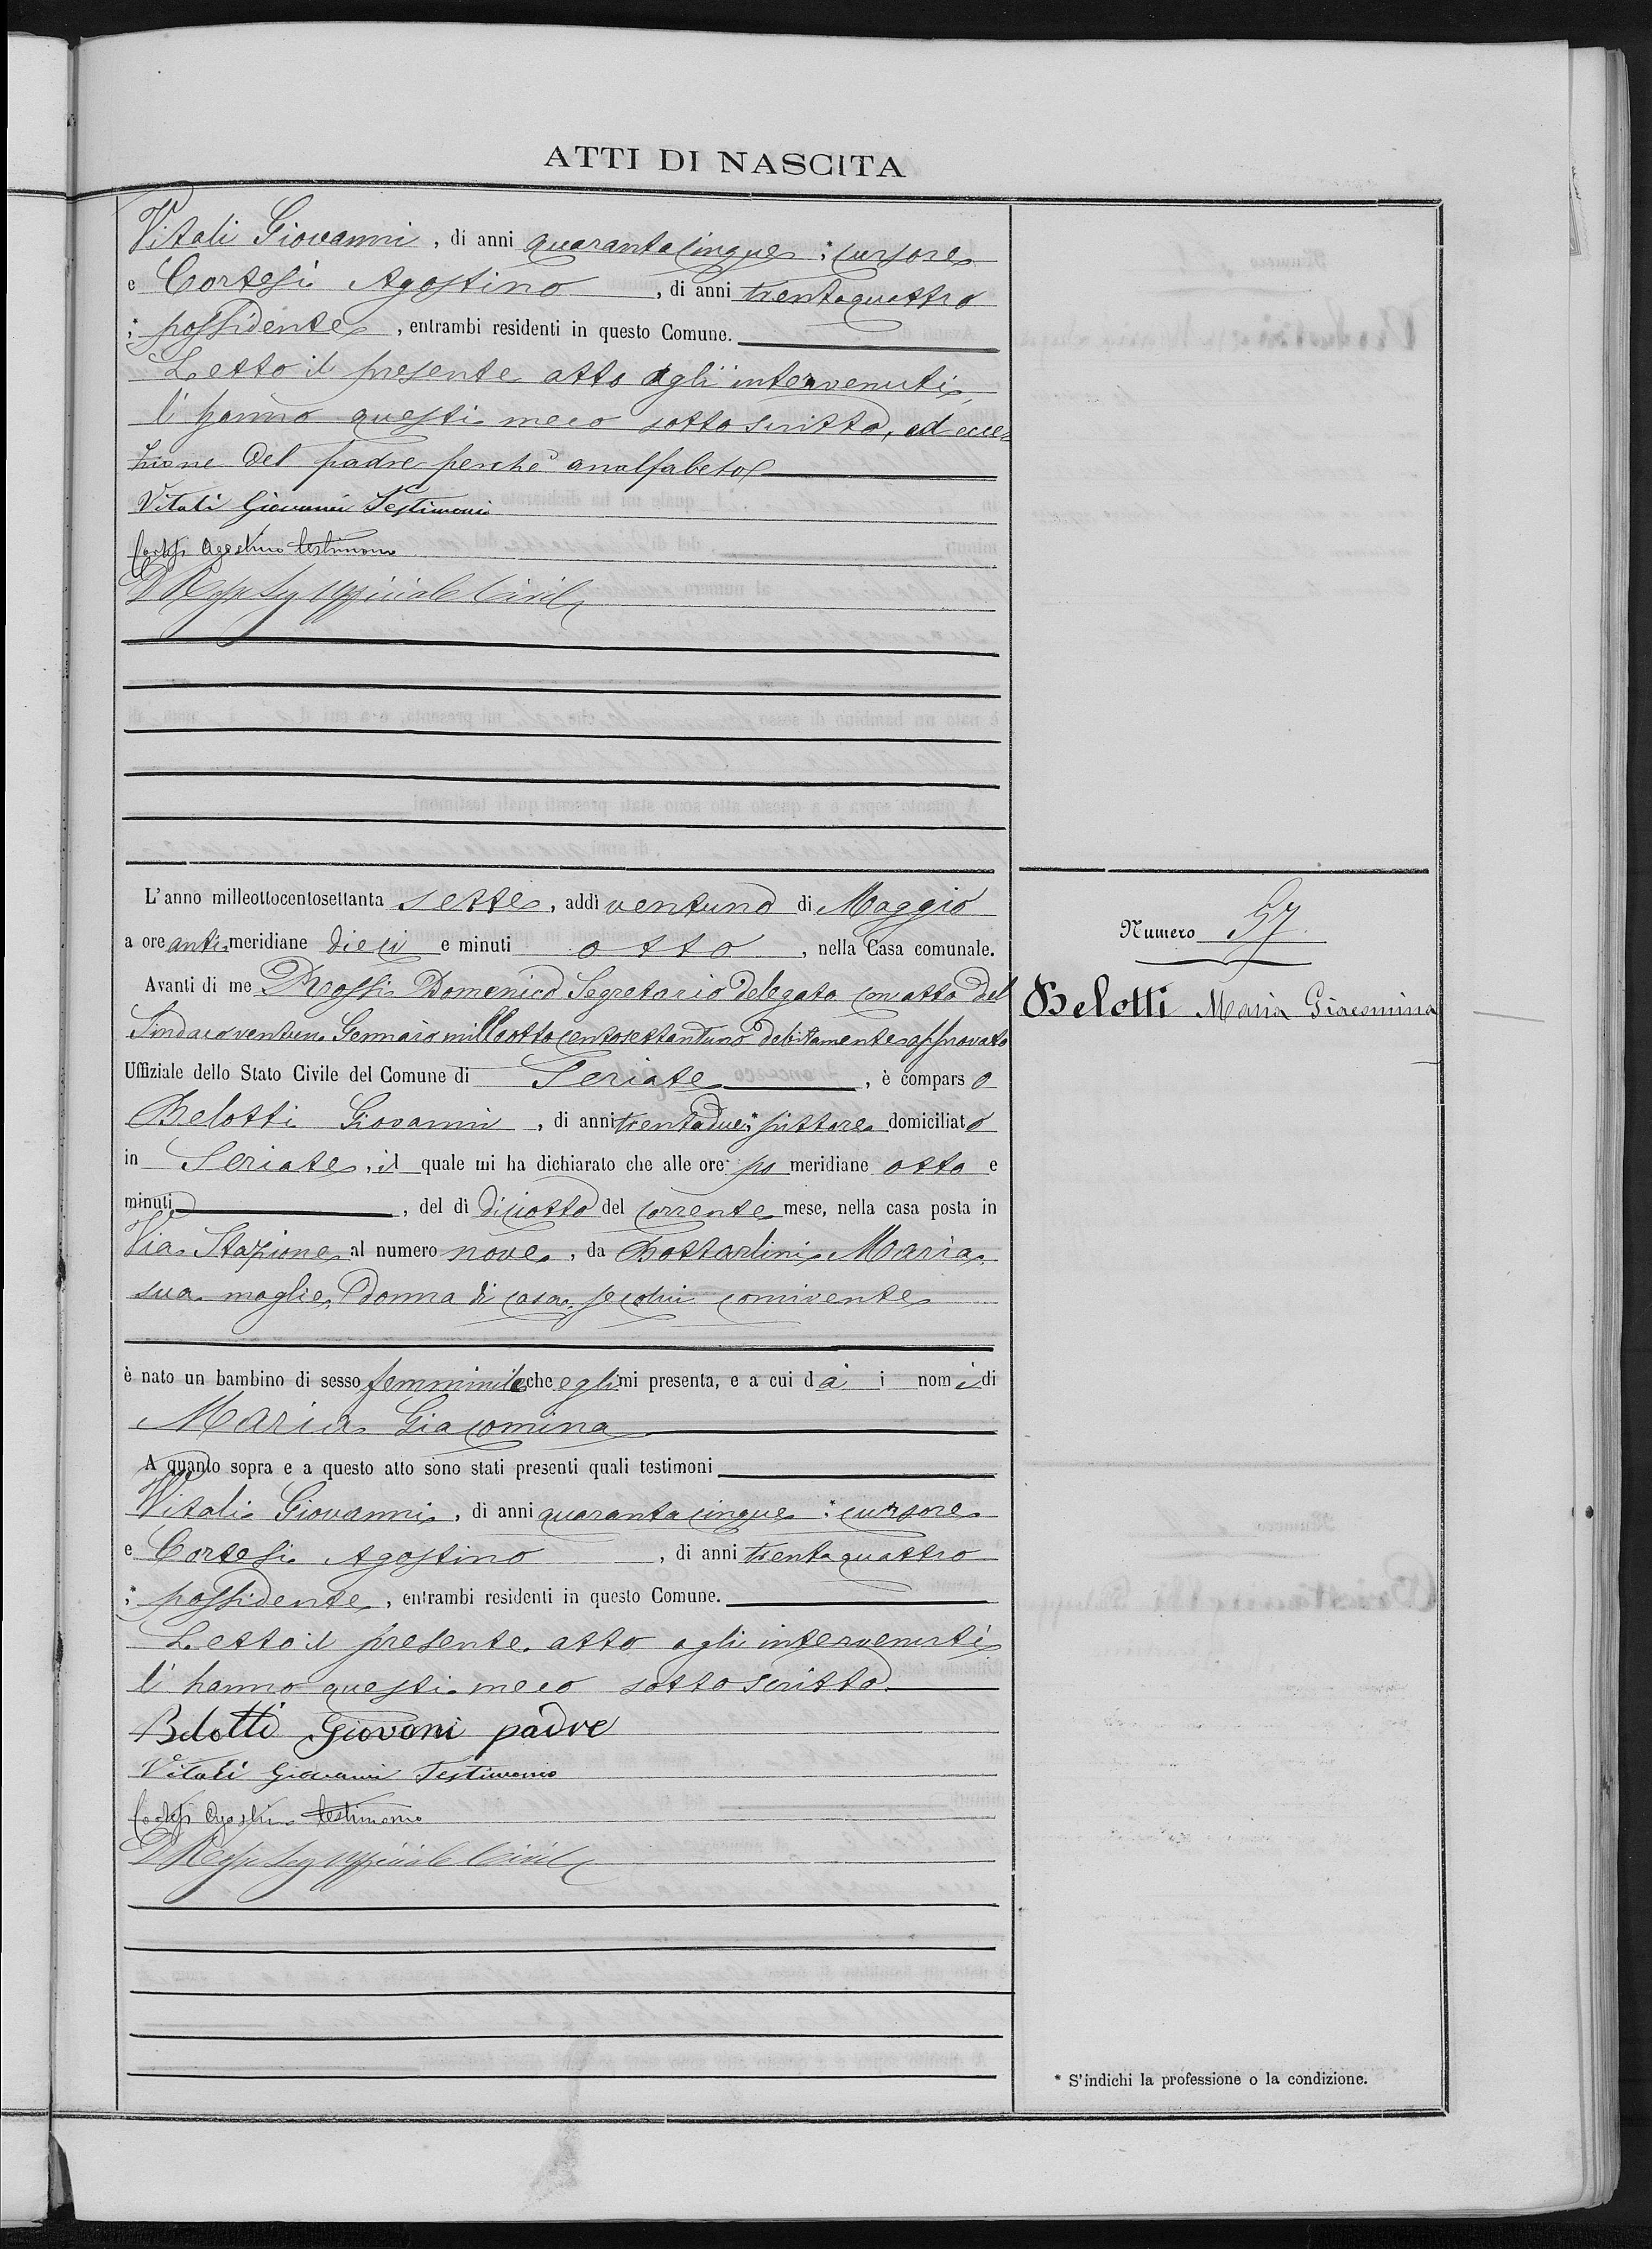 ATTI DI NASCITA
Vitali Giovanni, di anni quarantacinque; * cursore
e Cortesi Agostino, di anni trentaquattro
;* possidente, entrambi residenti in questo Comune.
Letto il presente atto agli intervenuti,
l'hanno questi meco sottoscritto, ad ecce-
zione del padre perchè analfabeto
Vitali Giovanni Testimonio
Cortesi Agostino testimonio
D Rossi Seg Uffiziale Civile
L'anno milleottocentosettanta sette, addì ventuno di Maggio
a ore antimeridiane dieci e minuti otto, nella Casa comunale.
Avanti di me Rossi Domenico Segretario delegato con atto del
Sindaco ventun Gennaio milleottocentosettantuno debitamente approvato
Uffiziale dello Stato Civile del Comune di Seriate, è comparso
Belotti Giovanni, di anni trentadue;* pittore domiciliato
in Seriate, il quale mi ha dichiarato che alle ore pomeridiane otto e
minuti, del dì diciotto del corrente mese, nella casa posta in
Via Stazione al numero nove, da Bottarlini Maria
sua moglie, donna di casa, secolui convivente
è nato un bambino di sesso femminile che egli mi presenta, e a cui dà i nomi di
Maria Giacomina
A quanto sopra e a questo atto sono stati presenti quali testimoni
Vitali Giovanni, di anni quarantacinque; * cursore
e Cortesi Agostino, di anni trentaquattro
;* possidente, entrambi residenti in questo Comune.
Letto il presente atto agli intervenuti
l'hanno questi meco sottoscritto.
Belotti Giovani padre
Vitali Giovanni Testimonio
Cortesi Agostino testimonio
D Rossi Seg Uffiziale Civile
Numero 57.
Belotti Maria Giacomina
* S'indichi la professione o la condizione.